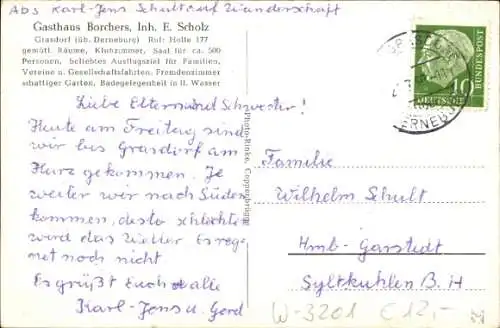 Abs Karl-Jens Schult auf Wanderschaft
Gasthaus Borchers, Inh. E. Scholz
Grasdorf (üb. Derneburg) Ruf: Holle 177
gemütl. Räume, Klubzimmer, Saal für ca. 500
Personen, beliebtes Ausflugsziel für Familien,
Vereine u. Gesellschaftsfahrten, Fremdenzimmer
schattiger Garten, Badegelegenheit in fl. Wasser
Liebe Eltern und Schwester!
Heute am Freitag sind
wir bis Grasdorf am
Harz gekommen. Je
weiter wir nach Süden
kommen, desto schlechter
wird das Wetter Es reg
net noch nicht
Es grüßt Euch alle
Karl-Jens u. Gerd
Photo-Rinke, Coppenbrügge
DEUTSCHE BUNDESPOST
10
Familie
Wilhelm Schult
Hmb-Garstedt
Syltkuhlen B. H
W-3201 €12,-